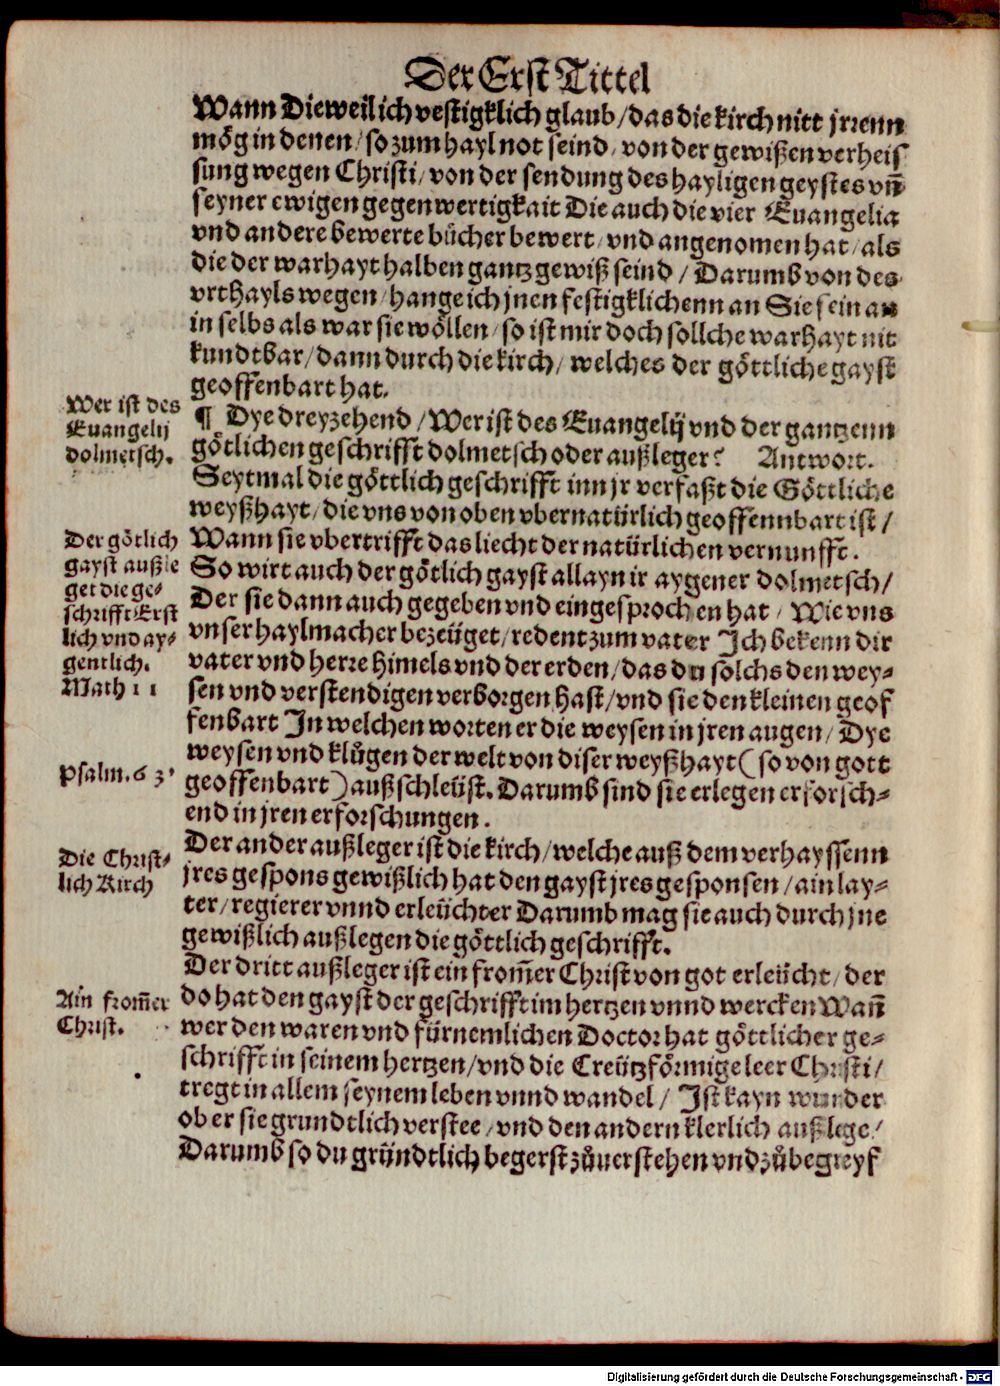 Der Erst Tittel
Wann Dieweil ich vestigklich glaub / das die kirch nitt jrrenn
mög in denen / so zum hayl not seind / von der gewißen verheis
sung wegen Christi / von der sendung des hayligen geystes vñ
seyner ewigen gegenwertigkait Die auch die vier Euangelia
vnd andere bewerte bücher bewert / vnd angenomen hat / als
die der warhayt halben gantz gewiß seind / Darumb von des
vrthayls wegen / hange ich jnen festigklichenn an Sie sein an
in selbs als war sie wöllen / so ist mir doch sollche warhayt nit
kundtbar / dann durch die kirch / welches der göttliche gayst
geoffenbart hat.
Wer ist des
Euangelij
dolmetsch.
¶ Dye dreyzehend / Wer ist des Euangelij vnd der gantzenn
götlichen geschrifft dolmetsch oder außleger? Antwort.
Seytmal die göttlich geschrifft inn jr verfaßt die Göttliche
weyßhayt / die vns von oben vbernatürlich geoffennbart ist /
Der götlich
gayst außle
get die ge-
schrifft Erst
lich vnd ay-
gentlich.
Math 11
Wann sie vbertrifft das liecht der natürlichen vernunfft.
So wirt auch der götlich gayst allayn ir aygener dolmetsch /
Der sie dann auch gegeben vnd eingesprochen hat / Wie vns
vnser haylmacher bezeüget / redent zum vater Ich bekenn dir
vater vnd herre himels vnd der erden / das du solchs den wey-
sen vnd verstendigen verborgen hast / vnd sie den kleinen geof
fenbart In welchen worten er die weysen in jren augen / Dye
weysen vnd klůgen der welt von diser weyßhayt ( so von gott
Psalm. 63.
geoffenbart ) außschleüst. Darumb sind sie erlegen erforsch-
end in jren erforschungen.
Die Christ-
lich Kirch
Der ander außleger ist die kirch / welche auß dem verhayssenn
jres gespons gewißlich hat den gayst jres gesponsen / ain lay-
ter / regierer vnnd erleüchter Darumb mag sie auch durch jne
gewißlich außlegen die göttlich geschrifft.
Ain from̃er
Christ.
Der dritt außleger ist ein from̃er Christ von got erleücht / der
do hat den gayst der geschrifft im hertzen vnnd wercken Wañ
wer den waren vnd fürnemlichen Doctor hat göttlicher ge-
schrifft in seinem hertzen / vnd die Creützförmige leer Christi /
tregt in allem seynem leben vnnd wandel / Ist kayn wunder
ob er sie grundtlich verstee / vnd den andern klerlich außlege /
Darumb so du gründtlich begerst zůuerstehen vnd zůbegreyf
Digitalisierung gefördert durch die Deutsche Forschungsgemeinschaft - DFG